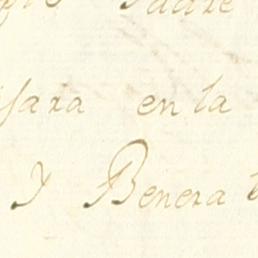 Padre
sara en la
Y Benera